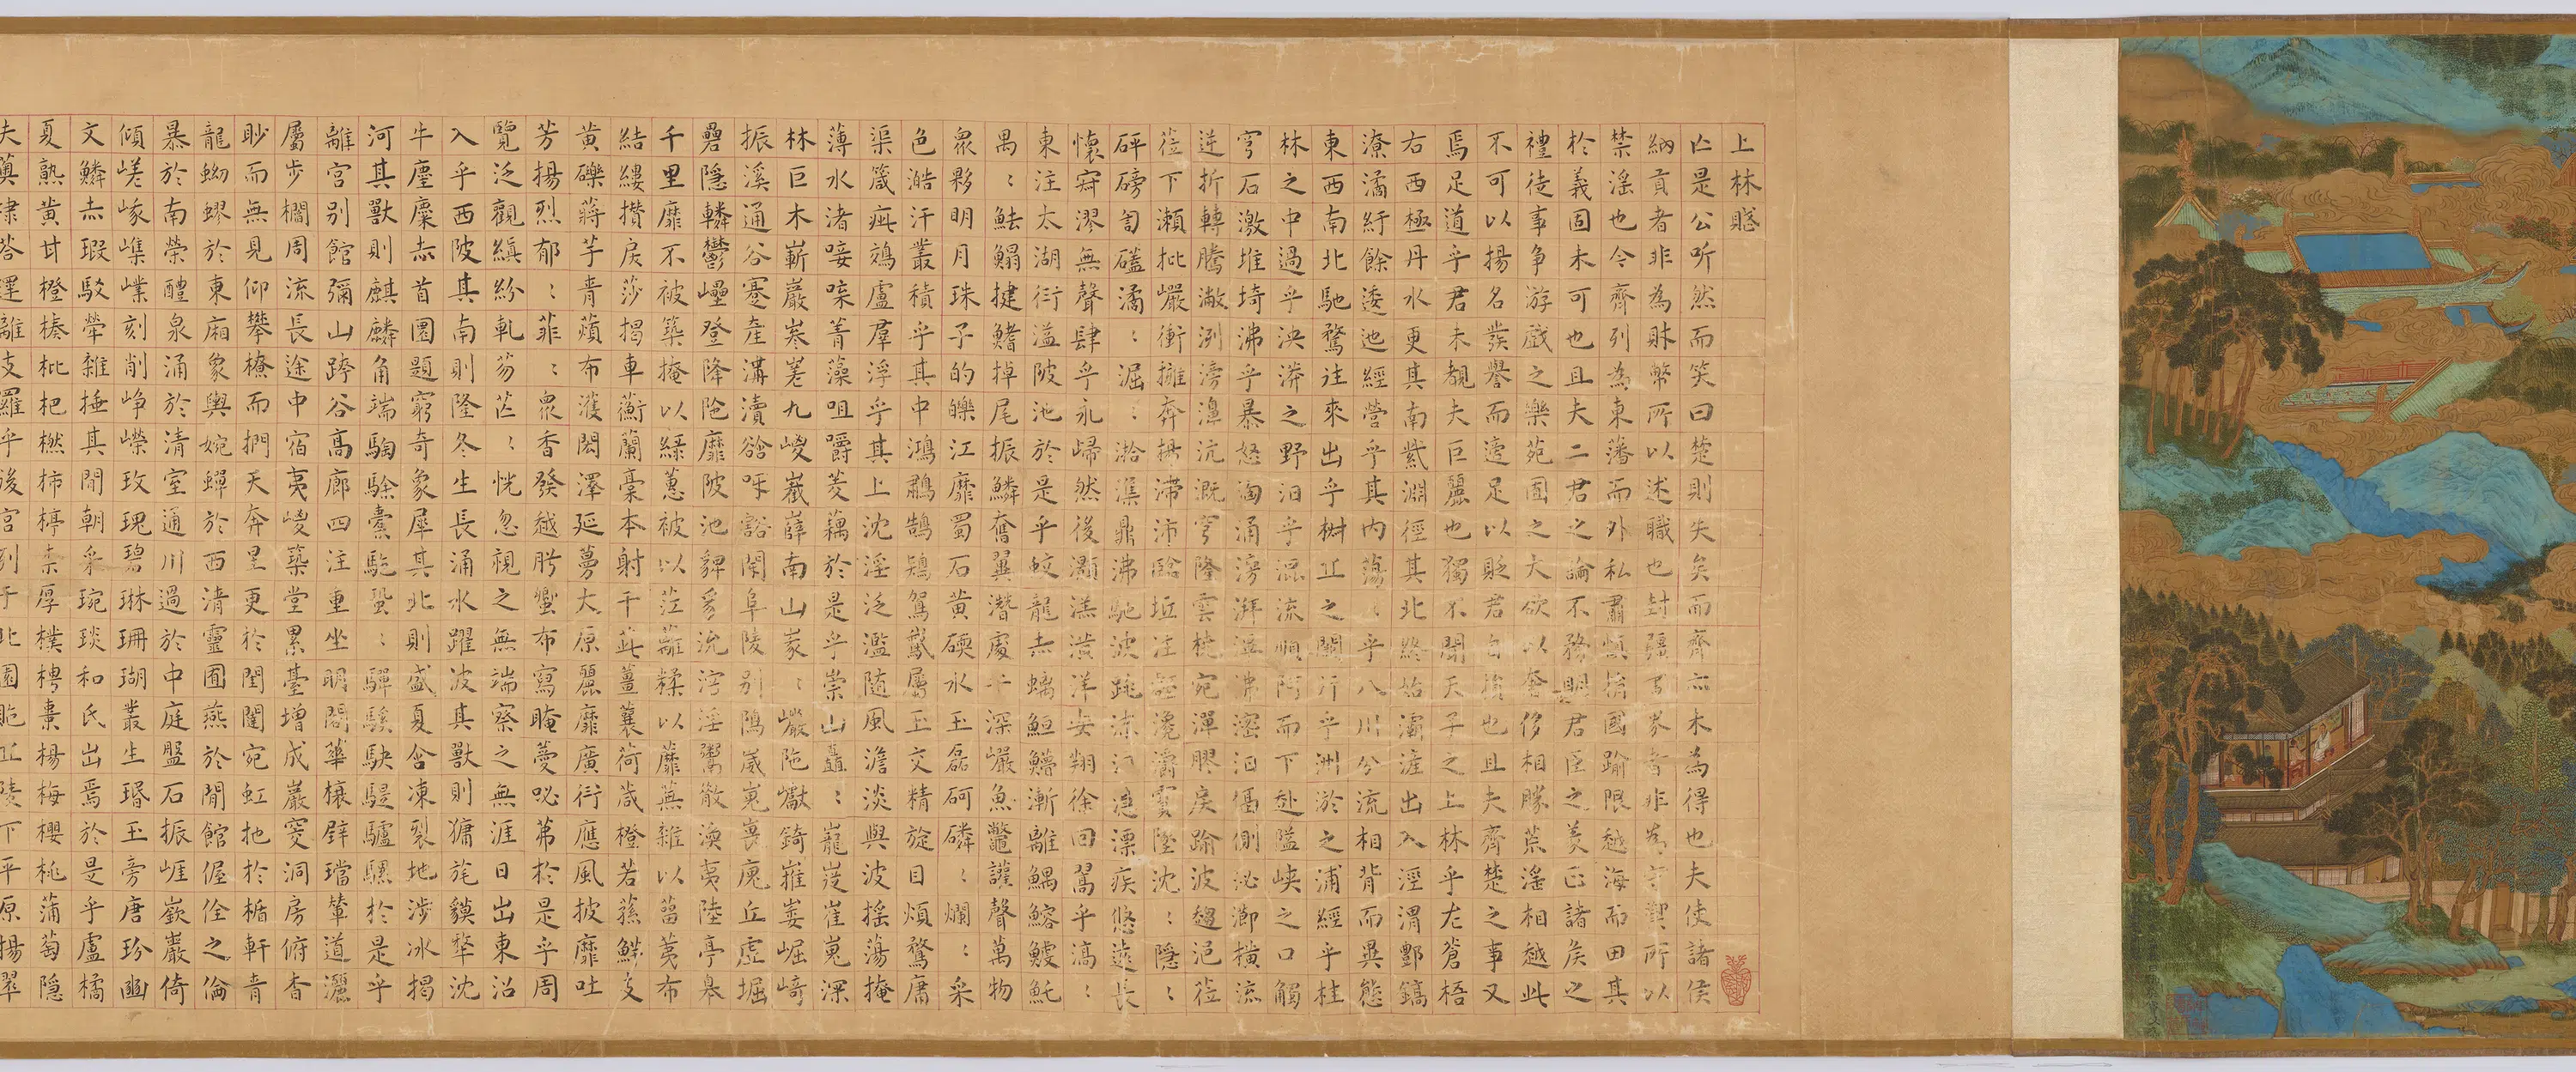 上林賦
亡是公听然而笑曰楚則失矣而齊亦未為得也夫使諸侯
納貢者非為財幣所以述職也封疆畫界者非為守禦所以
禁淫也今齊列為東藩而外私肅慎捐國踰限越海而田其
於義固未可也且夫二君之論不務明君臣之義正諸侯之
禮徒事爭游戲之樂苑囿之大欲以奢侈相勝荒淫相越此
不可以揚名發譽而適足以貶君自損也且夫齊楚之事又
焉足道乎君未覩夫巨麗也獨不聞天子之上林乎左蒼梧
右西極丹水更其南紫淵徑其北終始灞滻出入涇渭酆鎬
潦潏紆餘逶迤經營乎其內蕩〻乎八川分流相背而異態
東西南北馳騖往來出乎椒丘之闕行乎洲淤之浦經乎桂
林之中過乎泱漭之野汩乎混流順阿而下赴隘峽之口觸
穹石激堆埼沸乎暴怒洶涌滂湃滭沸滵汩偪側泌瀄橫流
逆折轉騰潎洌滂濞沆溉穹隆雲橈宛潬膠戾踰波趨浥蒞
蒞下瀨批巖衝擁奔揚滯沛臨坻注壑瀺灂霣墜沈〻隱〻
砰磅訇磕潏〻淈〻湁潗鼎沸馳波跳沫汩㶁漂疾悠遠長
懷寂漻無聲肆乎永歸然後灝溔潢漾安翔徐回翯乎滈〻
東注太湖衍溢陂池於是乎蛟龍赤螭䱭䲛漸離鰅鰫鰬魠
禺〻魼鰨揵鰭掉尾振鱗奮翼潛處乎深巖魚鼈讙聲萬物
眾夥明月珠子的皪江靡蜀石黃碝水玉磊砢磷〻爛〻采
色澔汗叢積乎其中鴻鷫鵠鴇鴛鵞屬玉交精旋目煩鶩庸
渠箴疵鵁盧羣浮乎其上沈淫泛濫隨風澹淡與波搖蕩掩
薄水渚唼喋菁藻咀嚼菱藕於是乎崇山矗〻巃嵸崔嵬深
林巨木嶄巖參嵯九嵕嶻嶭南山峩〻巖陁甗錡摧崣崛崎
振溪通谷蹇產溝瀆谽呀豁閜阜陵別隝崴嵬嵔廆丘虛堀
礨隱轔鬱㠥登降陁靡陂池貏豸沇溶淫鬻散渙夷陸亭皋
千里靡不被築掩以綠蕙被以江蘺糅以蘼蕪雜以留夷布
結縷攢戾莎揭車蘅蘭槀本射干茈薑蘘荷葴橙若蓀鮮支
黃礫蔣芧青薠布濩閎澤延蔓太原麗靡廣衍應風披靡吐
芳揚烈郁〻菲〻眾香發越肸蠁布寫晻薆咇茀於是乎周
覽泛觀縝紛軋芴芒〻恍忽視之無端察之無涯日出東沼
入乎西陂其南則隆冬生長涌水躍波其獸則㺎旄貘犛沈
牛麈麋赤首圜題窮奇象犀其北則盛夏含凍裂地涉冰揭
河其獸則麒麟角端騊駼橐駝蛩〻驒騱駃騠驢騾於是乎
離宮別館彌山跨谷高廊四注重坐曲閣華榱璧璫輦道纚
屬步櫩周流長途中宿夷嵕築堂累臺增成巖窔洞房俯杳
眇而無見仰攀橑而捫天奔星更於閨闥宛虹扡於楯軒青
龍蚴蟉於東廂象輿婉蟬於西清靈圄燕於閒館偓佺之倫
暴於南榮醴泉涌於清室通川過於中庭盤石振崖嶔巖倚
傾嵯峨嶕嶫刻削崢嶸玫瑰碧琳珊瑚叢生瑉玉旁唐玢豳
文鱗赤瑕駁犖雜插其間朝采琬琰和氏出焉於是乎盧橘
夏熟黃甘橙楱枇杷橪柿楟柰厚樸梬棗楊梅櫻桃蒲萄隱
夫薁棣荅遝離支羅乎後宮列于北園貤丘陵下平原揚翠